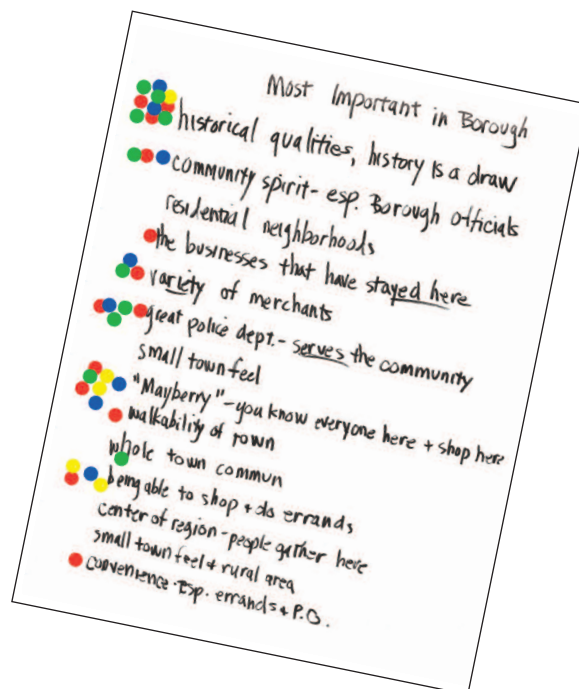 Most Important in Borough
historical qualities, history is a draw
community spirit - esp. Borough officials
residential neighborhoods
the businesses that have stayed here
variety of merchants
great police dept. - serves the community
small town feel
"Mayberry" - you know everyone here + shop here
walkability of town
whole town commun
being able to shop + do errands
center of region - people gather here
small town feel + rural area
convenience - esp. errands + P.O.